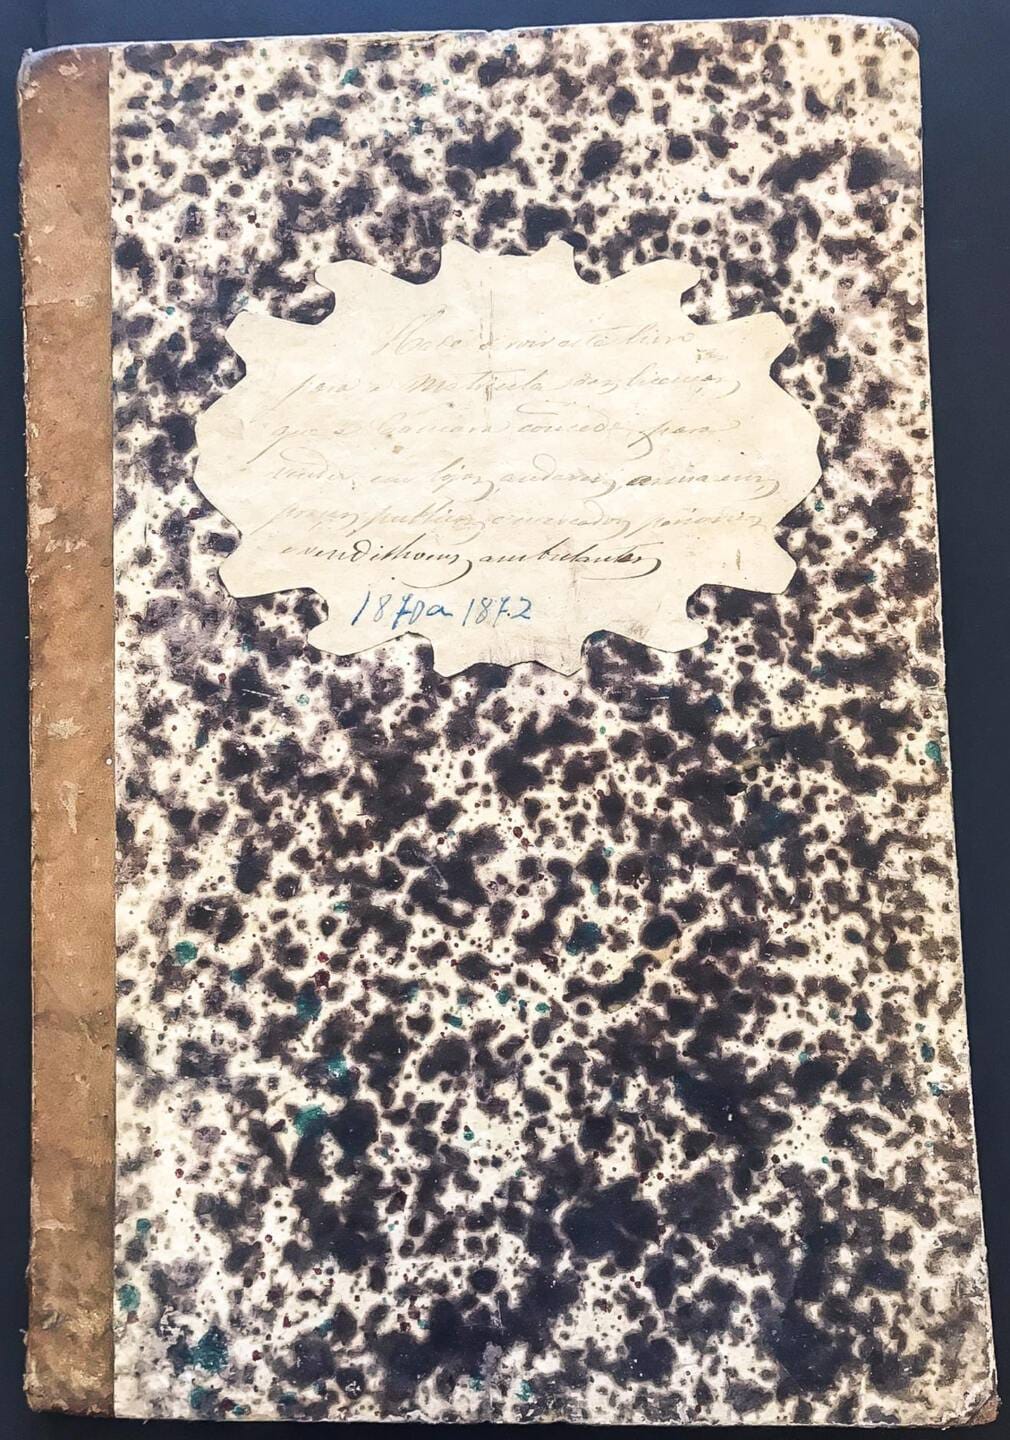 Ha de servir este livro
para a Matricula das licenças
que a Camara concede para
vender em lojas, andares, armazens
praças publicas e mercados
e vendilhoens ambulantes
1870 a 1872